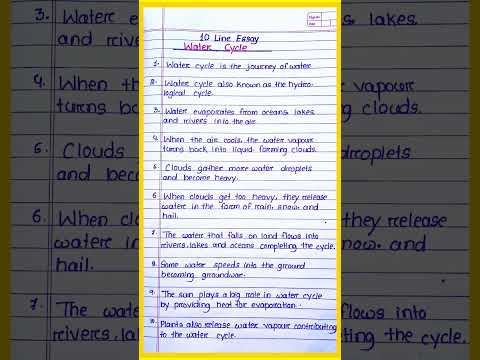 3. Water
and rivers
4. When the
turns back
5. Clouds
and become
6. When clo
water in
hail.
7. The wate
rivers, lak
Page No
Date
10 Line Essay
Water Cycle
1. Water cycle is the journey of water
2. Water cycle also known as the hydro-
logical cycle.
3. Water evaporates from oceans, lakes
and rivers into the air
4. When the air cools, the water vapour
turns back into liquid forming clouds.
5. Clouds gather more water droplets
and become heavy.
6. When clouds get too heavy, they release
water in the form of rain, snow, and
hail.
7. The water that falls on land flows into
rivers, lakes and oceans completing the cycle.
8. Some water speeds into the ground
becoming groundware.
9. The sun plays a big role in water cycle
by providing heat for evaporation.
10. Plants also release water vapour contributing
to the water cycle.
lakes
vapour
clouds.
droplets
they release
and
flows into
the cycle.